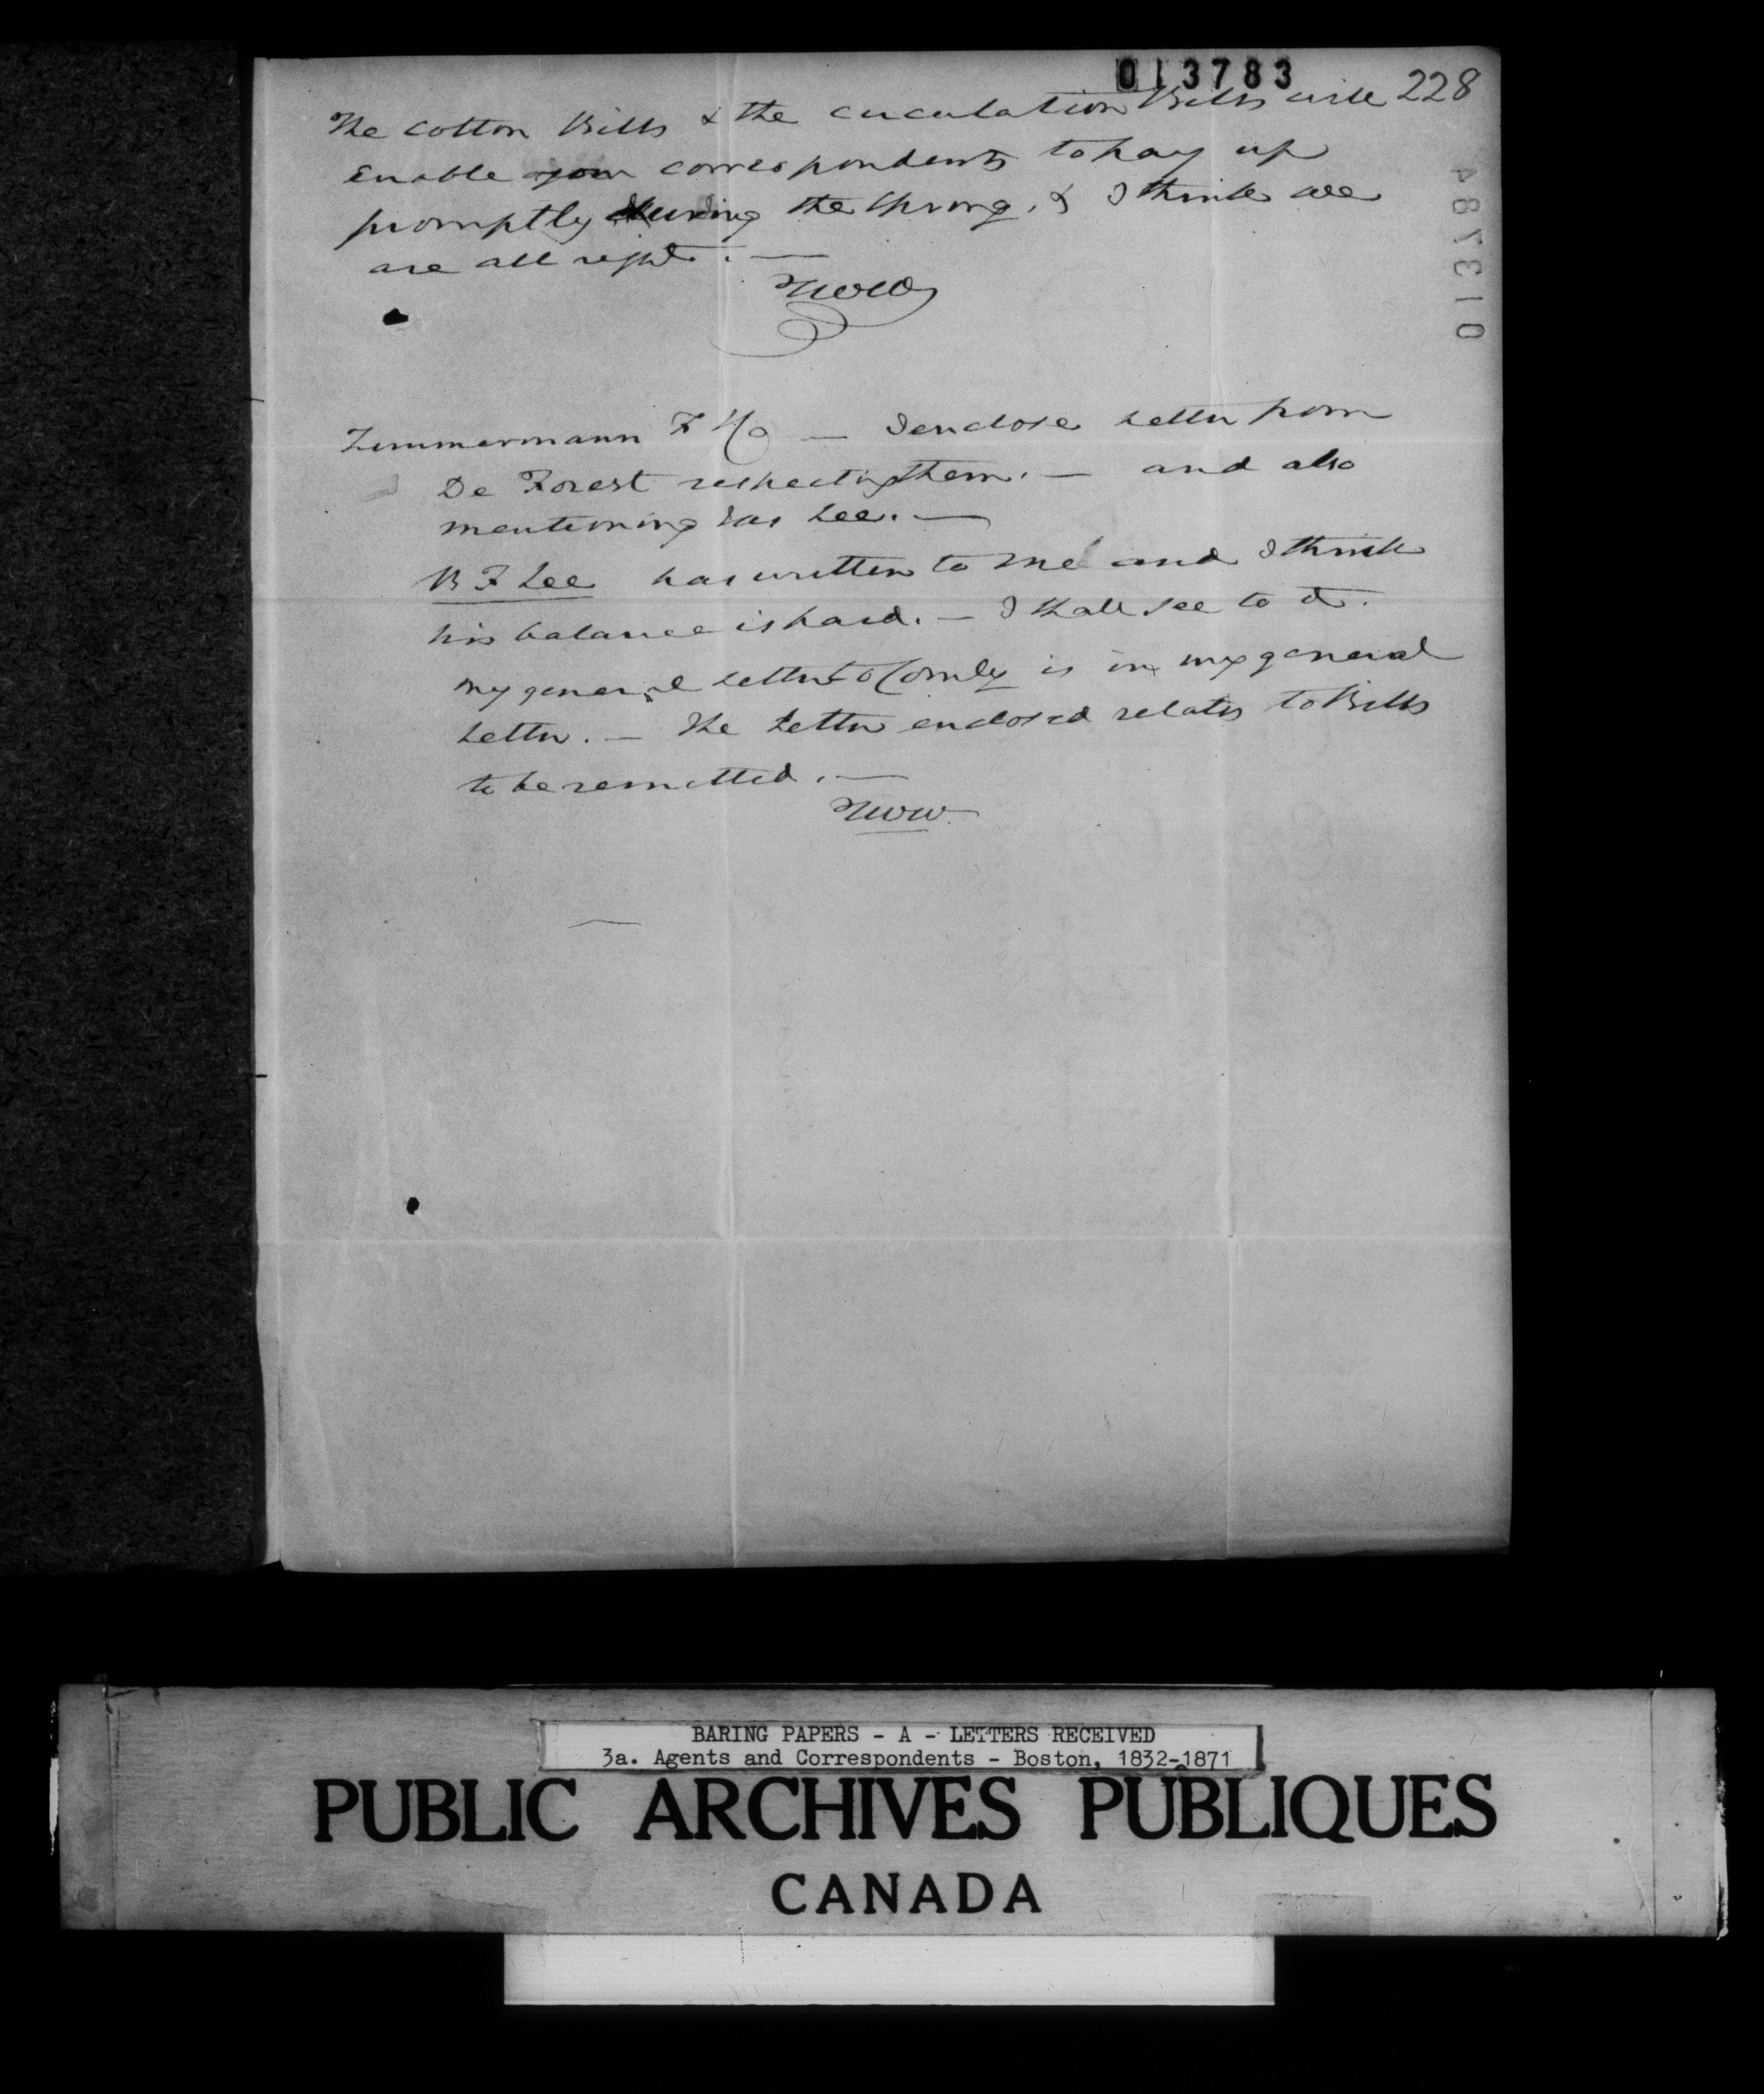 013783
228
The cotton Bills & the circulation Bills will
enable your correspondents to pay up
promptly during the Spring. & I think we
are all right. —
TWW
013784
Zimmermann F & Co — I enclose letter from
De Forest respecting them. — and also
mentioning Jas Lee. —
B F Lee has written to me and I think
his balance is paid. — I shall see to it.
my general letter to Comly is in my general
letter. — The letter enclosed relates to Bills
to be remitted. —
TWW.
BARING PAPERS - A - LETTERS RECEIVED
3a. Agents and Correspondents - Boston, 1832-1871
PUBLIC ARCHIVES PUBLIQUES
CANADA